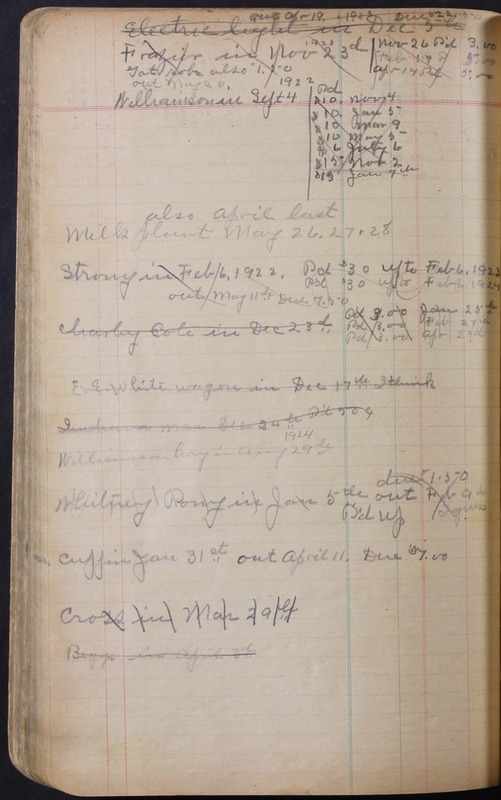 out Apr 19 1923 Due 22.50
Electric light in Dec 5th
Frazier in Nov 23d 1923 Nov 26 Pd 3.00
Feb 1 Pd 5.00
also 1.50 Apr 14 Pd 5.00
out May 20
Williamson in Sept 4 1922 Pd
$10. Nov 4
$10. Jan 5
$10 Mar 9
$10 May 5
$6 July 6
$15 Nov 2
$15 Jan 7th
also April last
Milk plant May 26, 27 + 28
Strong in Feb 6, 1922. Pd $30 up to Feb 6, 1923
Pd $30 up to Feb 6 1924
out May 11th Due 7.50
Pd 3.00 Jan 28th
Charley Cole in Dec 28d Pd 3.00 Feb 27th
Pd 3.00 Apr 2d
E. E. White wagon in Dec 17th I think
man Dec 24th Pd 50¢
1924
Williamson hay in 29th
due 1.50
Whitney Pony in Jan 5th out Feb 9
Pd up
Cuff in Jan 31st out April 11. Due $7.00
Cross in Mar 29th
Biggs in April 3d